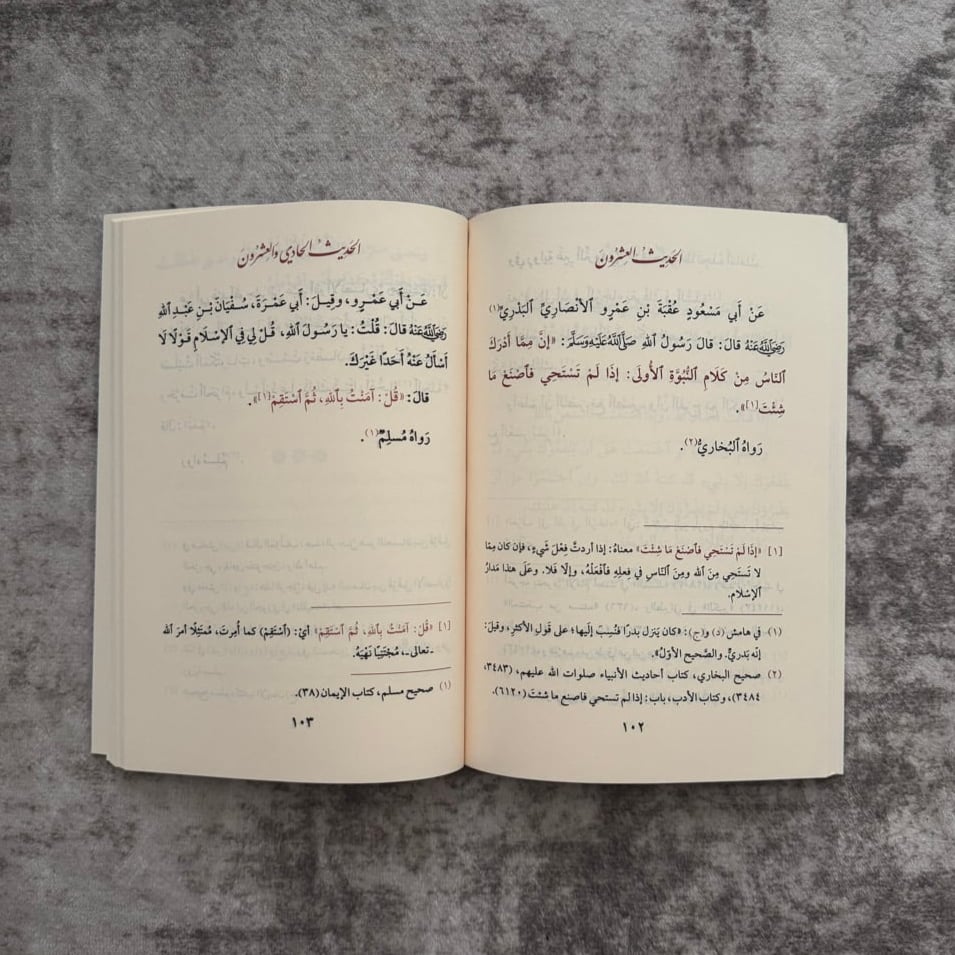 الحَدِيثُ العِشْرُونَ
عَنْ أَبِي مَسْعُودٍ عُقْبَةَ بْنِ عَمْرٍو ٱلأَنْصَارِيِّ ٱلبَدْرِيِّ(١)
رَضِيَ اللَّهُ عَنْهُ قالَ: قالَ رَسُولُ ٱللهِ صَلَّى اللَّهُ عَلَيْهِ وَسَلَّمَ: «إِنَّ مِمَّا أَدْرَكَ
ٱلنَّاسُ مِنْ كَلَامِ ٱلنُّبُوَّةِ ٱلأُولَى: إِذَا لَمْ تَسْتَحِي فَٱصْنَعْ مَا
شِئْتَ[١]».
رَوَاهُ ٱلبُخَارِيُّ(٢).
[١] «إِذَا لَمْ تَسْتَحِي فَٱصْنَعْ مَا شِئْتَ» معناهُ: إذا أردتَ فِعْلَ شَيءٍ، فإن كان مِمَّا
لا تَسْتَحِي مِنَ ٱلله ومِنَ ٱلنَّاسِ في فِعلِهِ فٱفْعَلْهُ، وإلَّا فلا. وعَلَى هذا مَدَارُ
ٱلإسْلام.
(١) في هامش (د) و(ج): «كان يَنزل بدرًا فنُسِبَ إليها؛ على قَولِ الأكثرِ، وقيلَ:
إنَّه بَدريٌّ. والصَّحيح الأوَّلُ».
(٢) صحيح البخاري، كتاب أحاديث الأنبياء صلوات الله عليهم، (٣٤٨٣،
٣٤٨٤)، وكتاب الأدب، باب: إذا لم تستحي فاصنع ما شئتَ (٦١٢٠).
١٠٢
الحَدِيثُ الحَادِي وَالعِشْرُونَ
عَنْ أَبِي عَمْرٍو، وَقِيلَ: أَبِي عَمْرَةَ، سُفْيَانَ بْنِ عَبْدِ ٱللهِ
رَضِيَ اللَّهُ عَنْهُ قالَ: قُلْتُ: يا رَسُولَ ٱللهِ، قُلْ لِي فِي ٱلإِسْلَامِ قَوْلًا لَا
أَسْأَلُ عَنْهُ أَحَدًا غَيْرَكَ.
قالَ: «قُلْ: آمَنْتُ بِٱللهِ، ثُمَّ ٱسْتَقِمْ[١]».
رَوَاهُ مُسْلِمٌ(١).
[١] «قُلْ: آمَنْتُ بِٱللهِ، ثُمَّ ٱسْتَقِمْ» أيْ: (ٱستَقِمْ) كما أُمِرتَ، مُمتَثِلًا أمرَ ٱلله
-تعالى-، مُجْتَنِبًا نَهْيَهُ.
(١) صحيح مسلم، كتاب الإيمان (٣٨).
١٠٣